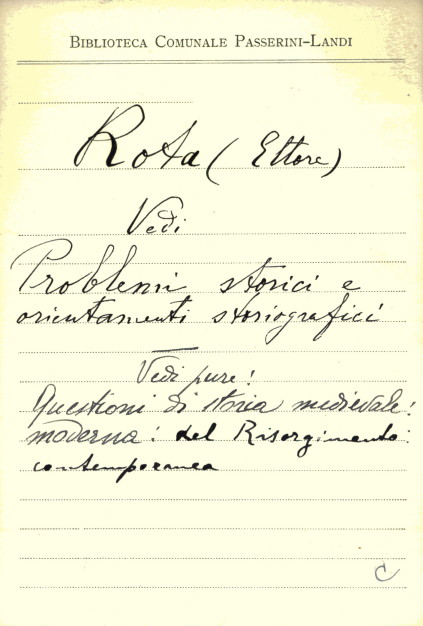 BIBLIOTECA COMUNALE PASSERINI-LANDI
Rota (Ettore)
Vedi
Problemi storici e
orientamenti storiografici
Vedi pure:
Questioni di storia medievale:
moderna: del Risorgimento:
contemporanea
C